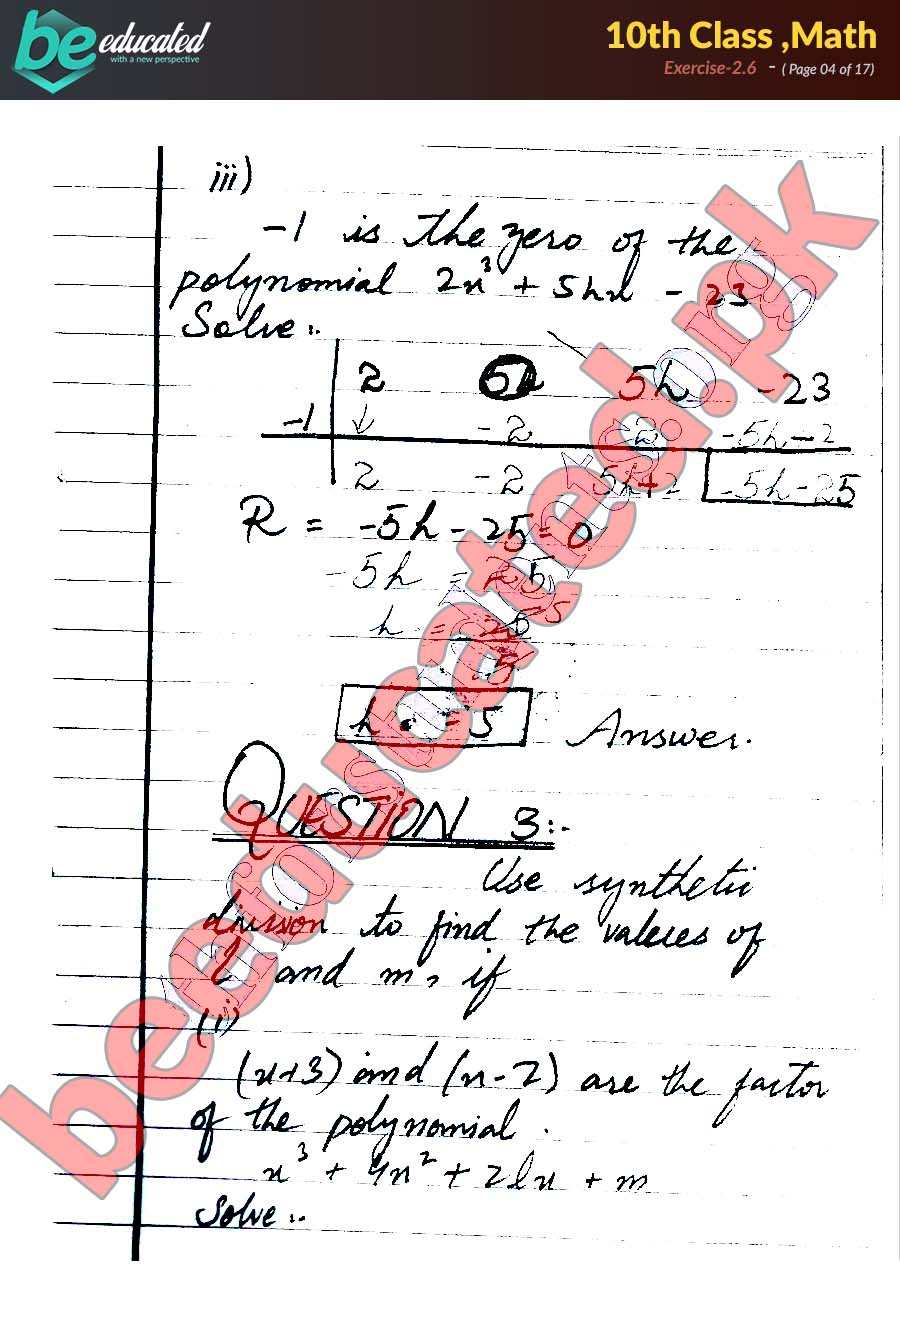 be educated
with a new perspective
10th Class ,Math
Exercise-2.6 - ( Page 04 of 17)
iii)
-1 is the zero of the
polynomial 2x³ + 5hx - 23
Solve:.
2 5h - 23
-1 ↓ -2 2 -5h-2
2 -2 5h+2 -5h-25
R = -5h - 25 = 0
-5h = 25
h = 25
-5
h = -5 Answer.
QUESTION 3:-
Use synthetic
division to find the values of
l and m, if
(i)
(x+3) and (x-2) are the factor
of the polynomial.
x³ + 4x² + 2lx + m
Solve:.
beeducated.pk